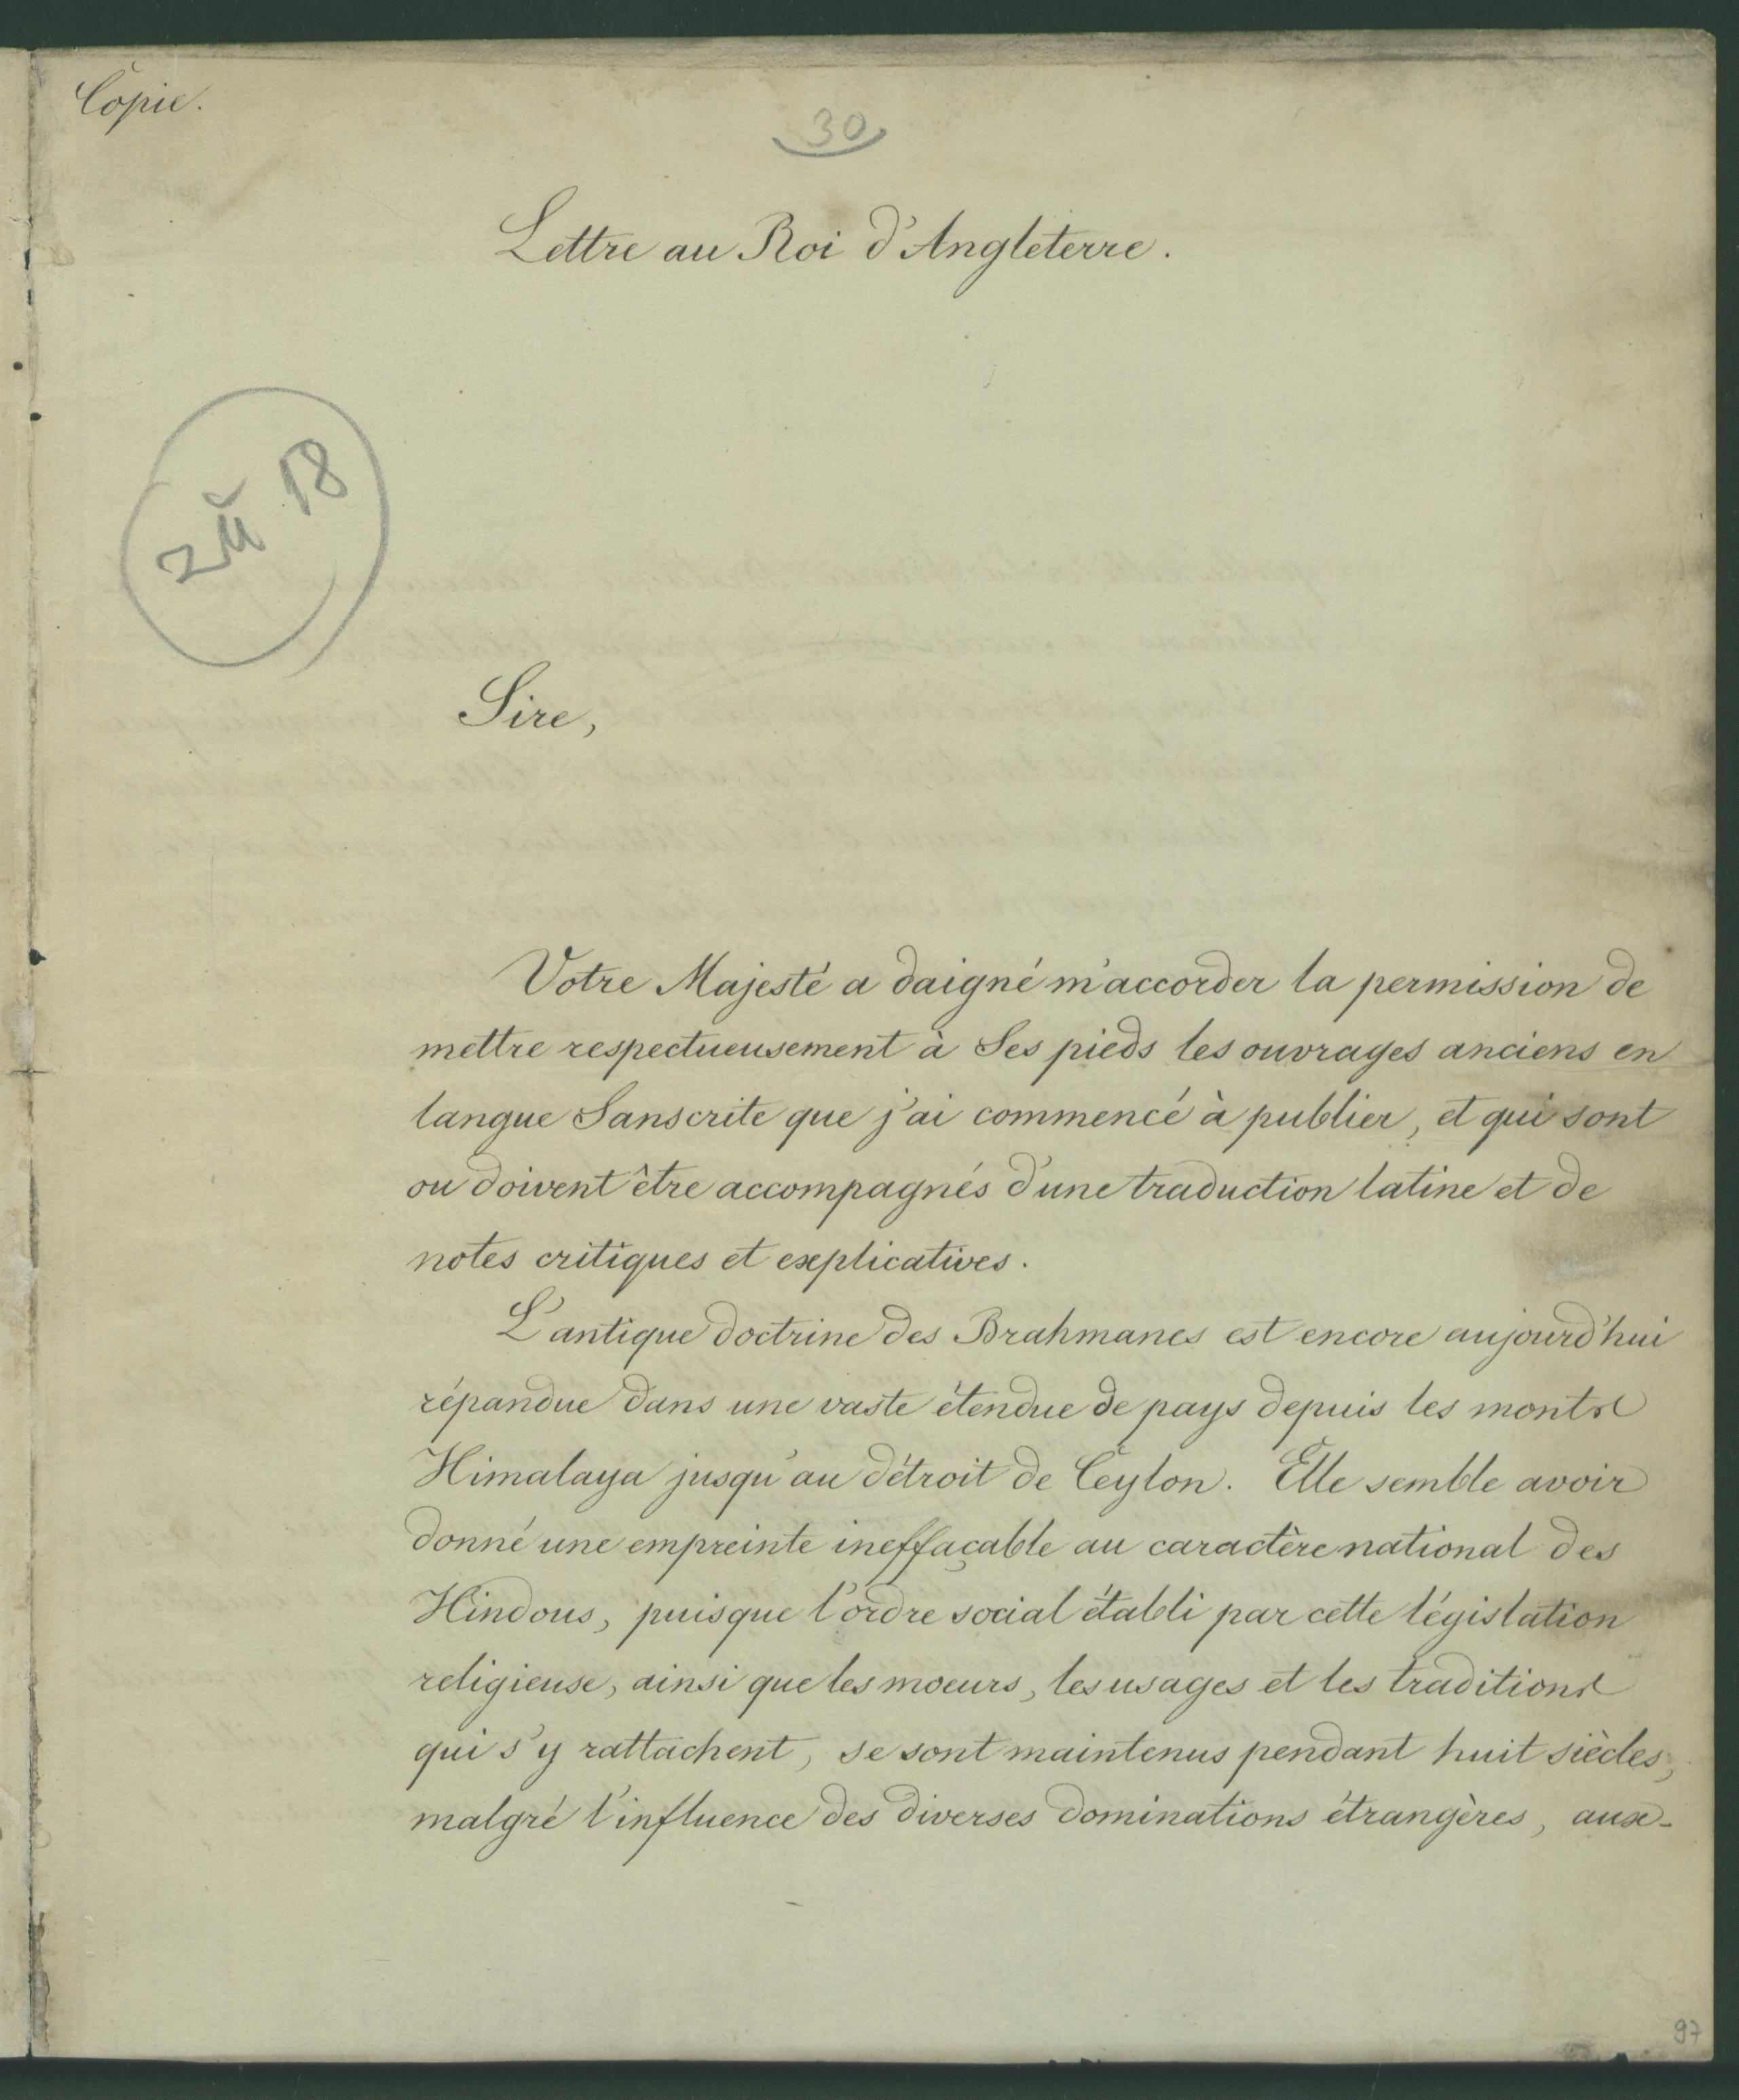 Copie.
30
Lettre au Roi d'Angleterre.
zu 18
Sire,
Votre Majesté a daigné m'accorder la permission de
mettre respectueusement à Ses pieds les ouvrages anciens en
langue Sanscrite que j'ai commencé à publier, et qui sont
ou doivent être accompagnés d'une traduction latine et de
notes critiques et explicatives.
L'antique doctrine des Brahmanes est encore aujourd'hui
répandue dans une vaste étendue de pays depuis les monts
Himalaya jusqu'au détroit de Ceylon. Elle semble avoir
donné une empreinte ineffaçable au caractère national des
Hindous, puisque l'ordre social établi par cette législation
religieuse, ainsi que les moeurs, les usages et les traditions
qui s'y rattachent, se sont maintenus pendant huit siècles,
malgré l'influence des diverses dominations étrangères, aux-
97